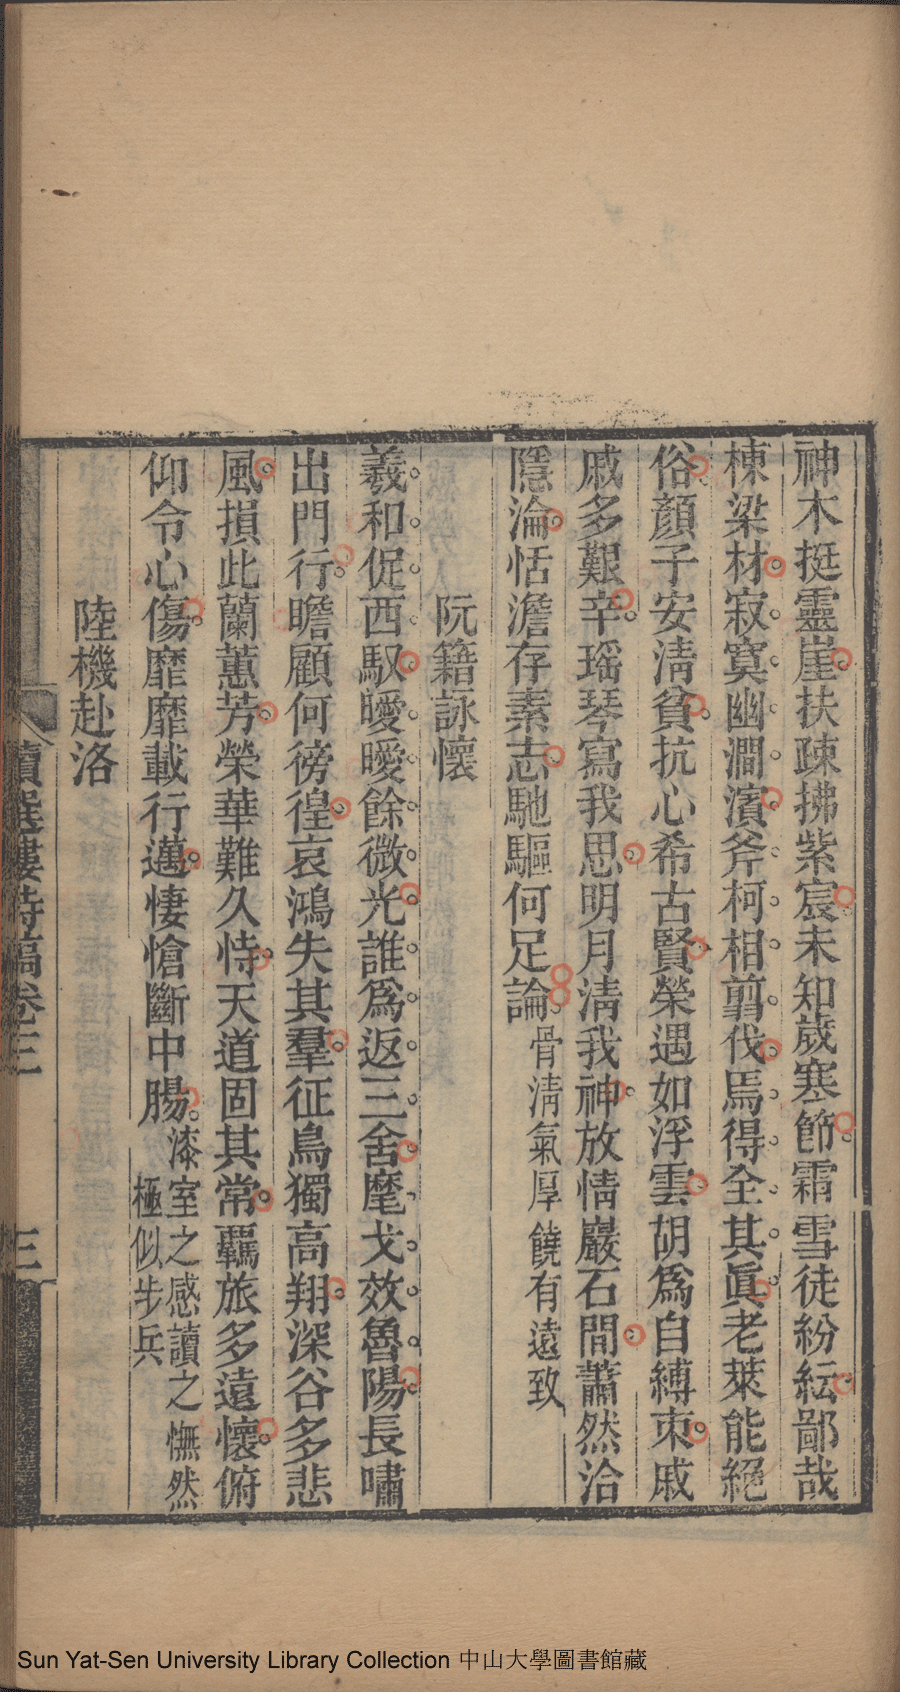 神木挺靈崖扶疎拂紫宸未知歲寒節霜雪徒紛紜鄙哉
棟梁材寂寞幽澗濱斧柯相翦伐焉得全其眞老萊能絕
俗顏子安淸貧抗心希古賢榮遇如浮雲胡爲自縛束戚
戚多艱辛瑶琴寫我思明月淸我神放情巖石間蕭然洽
隱淪恬澹存素志馳驅何足論骨淸氣厚饒有遠致
阮籍詠懷
羲和促西馭曖曖餘微光誰爲返三舍麾戈效魯陽長嘯
出門行瞻顧何徬徨哀鴻失其羣征鳥獨高翔深谷多悲
風損此蘭蕙芳榮華難久恃天道固其常羈旅多遠懷俯
仰令心傷靡靡載行邁悽愴斷中腸漆室之感讀之憮然
極似步兵
陸機赴洛
讀選樓詩稿卷三
三
Sun Yat-Sen University Library Collection 中山大學圖書館藏